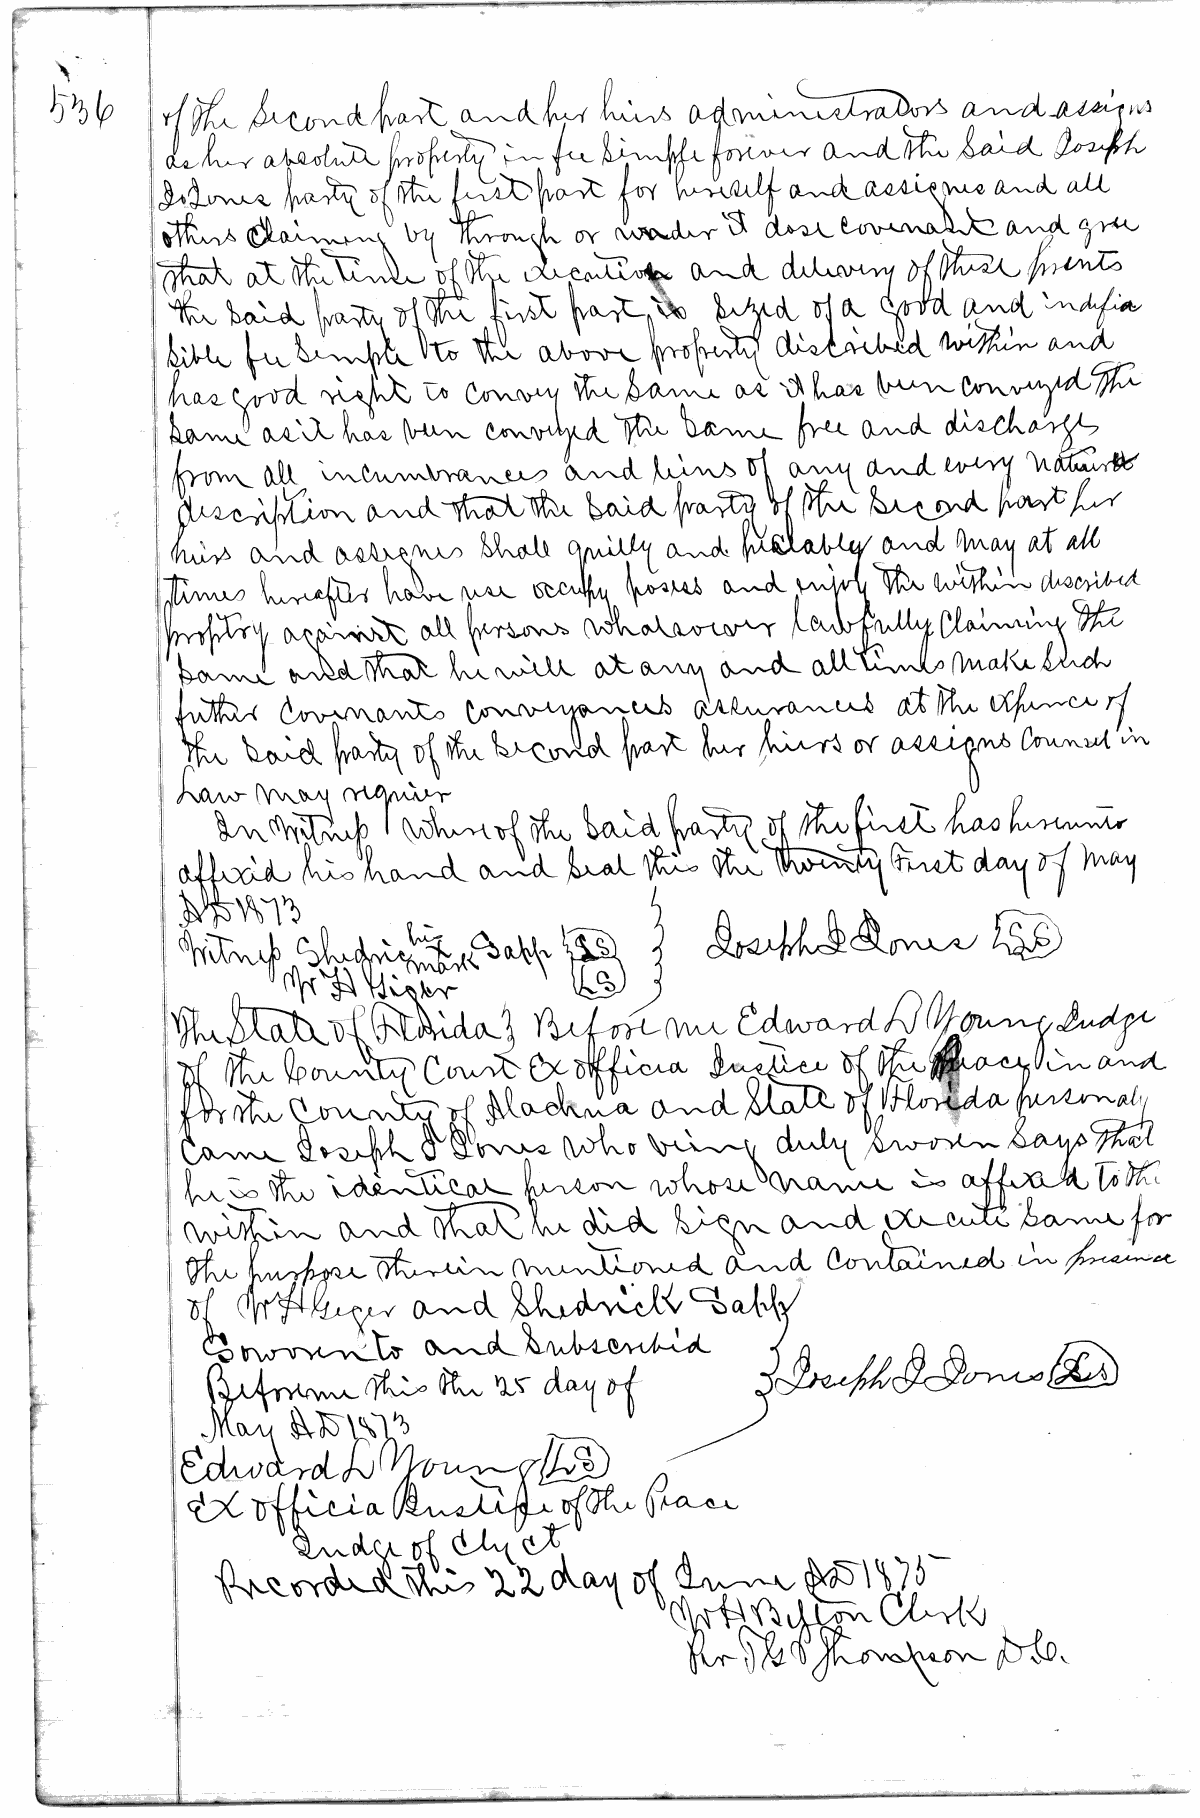 536
of the Second part and her hiers administrators and assigns
as her absolute property in fee Simple forever and the Said Joseph
J Jones party of the first part for hereself and assignes and all
others Claiming by through or under it dose covenant and gree
that at the time of the execution and delivery of these prents
the Said party of the first part is Sezed of a good and indifia
sible fee Semple to the above property discribed within and
has good right to convey the Same as it has been conveyed the
Same as it has been conveyed the Same free and discharges
from all incumbrances and liens of any and every nature
description and that the Said party of the Second part her
hiers and assignes Shall quilly and picelabley and may at all
times hereafter have use occupy posess and enjoy the within described
proptry against all persons whatsoever lawfully Claiming the
Same and that he will at any and all times make Such
futher Covenants conveyances assurances at the expence of
the Said party of the Second part her hiers or assigns Counsel in
Law may requier
In Witness Whereof the Said party of the first has hereunto
affixed his hand and Seal this the twenty First day of May
AD 1873
Witness Shedric his X mark Sapp LS } Joseph J Jones LS
W H Giger LS
The State of Florida } Before me Edward L Young Judge
of the County Court Ex officia Justice of the Peace in and
for the County of Alachua and State of Florida personaly
came Joseph J Jones who being duly Sworen Says that
he is the identical person whose name is affixed to the
within and that he did Sign and execute Same for
the purpose therein mentioned and contained in presence
of W H Geger and Shedrick Sapp
Soworen to and Subscribed
Before me this the 25 day of } Joseph J Jones LS
May AD 1873
Edward L Young LS
Ex officia Justice of the Peace
Judge of Cty ct
Recorded this 22 day of June AD 1875
W H Belton Clerk
Per T G P Thompson D.C.